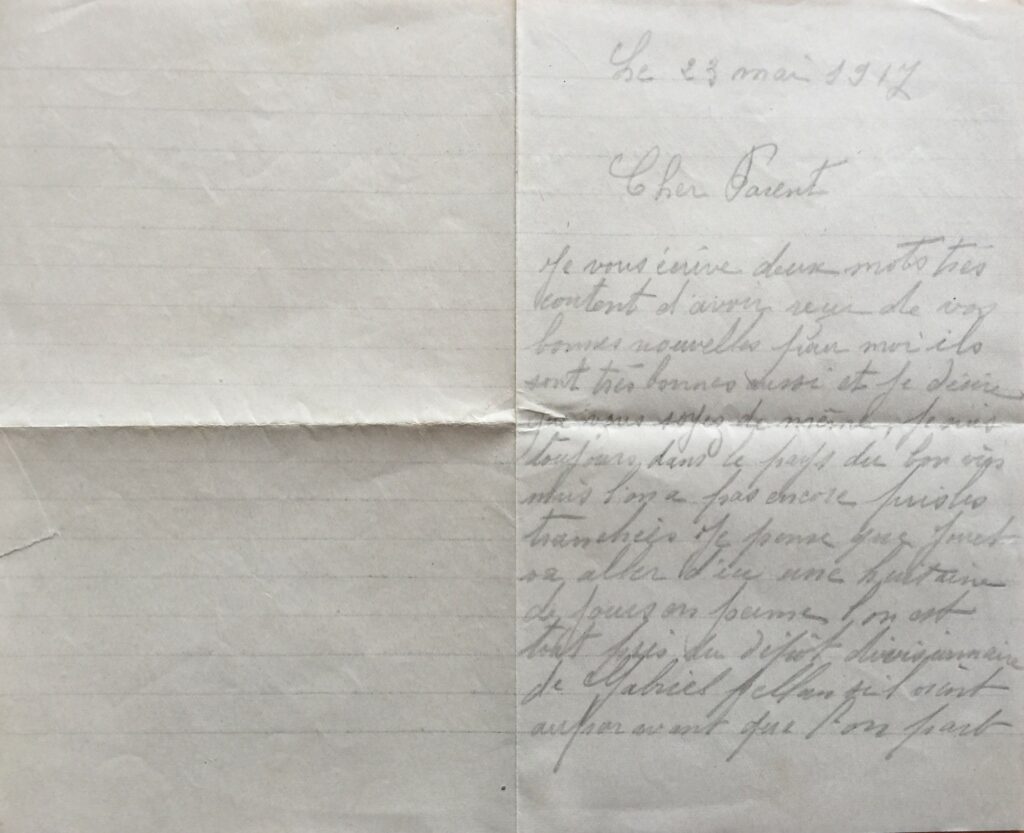 Le 23 mai 1917
Cher Parent
Je vous écrive deux mots très
content d'avoir reçu de vos
bonnes nouvelles pour moi ils
sont très bonnes aussi et je désire
que vous soyez de même, je suis
toujours dans le pays du bon vin
mais l'on a pas encore pris les
tranchées Je pense que
va aller d'ici une huitaine
de jours on pense l'on est
tout près du dépôt divisionnaire
de Gabriel s'il vient
auparavant que l'on part